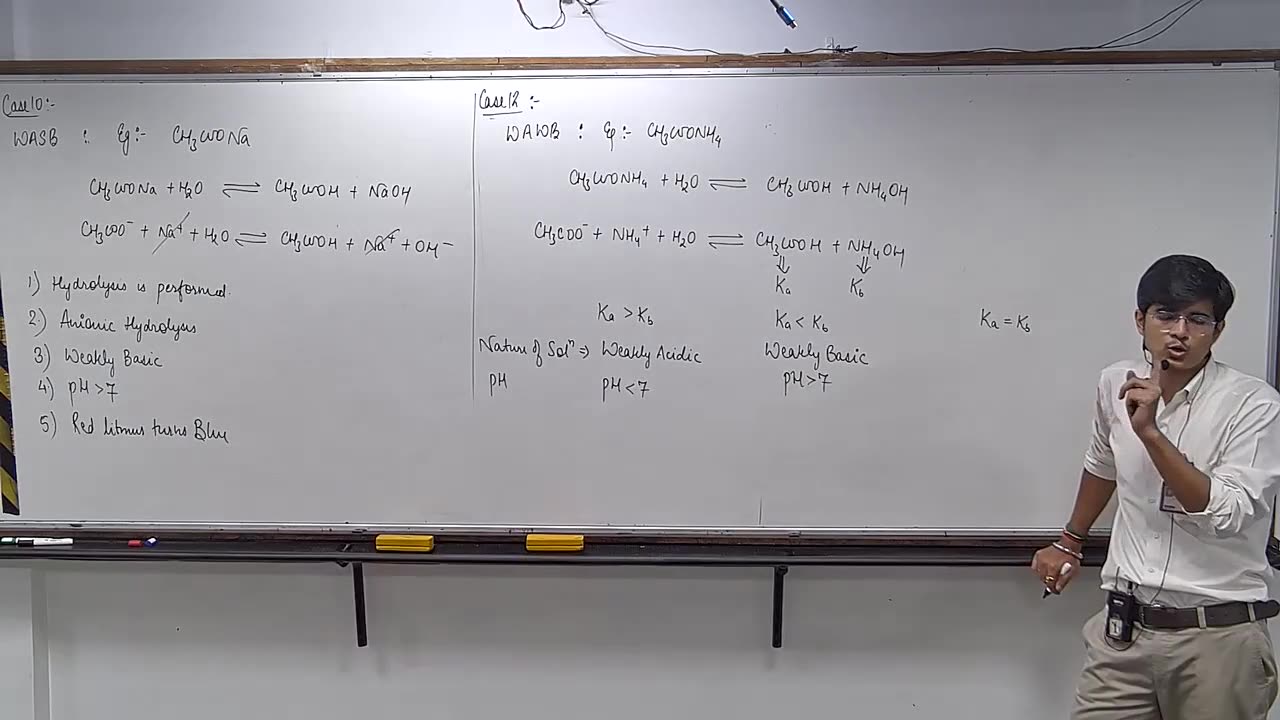 Case 10:-
WASB : Eg:- CH₃COONa
CH₃COONa + H₂O ⇌ CH₃COOH + NaOH
CH₃COO⁻ + Na⁺ + H₂O ⇌ CH₃COOH + Na⁺ + OH⁻
1) Hydrolysis is performed.
2) Anionic Hydrolysis
3) Weakly Basic
4) pH > 7
5) Red litmus turns Blue
Case 12 :-
WAWB : Eg:- CH₃COONH₄
CH₃COONH₄ + H₂O ⇌ CH₃COOH + NH₄OH
CH₃COO⁻ + NH₄⁺ + H₂O ⇌ CH₃COOH + NH₄OH
⇓ ⇓
Ka Kb
Ka > Kb Ka < Kb Ka = Kb
Nature of Solⁿ ⇒ Weakly Acidic Weakly Basic
pH pH < 7 pH > 7